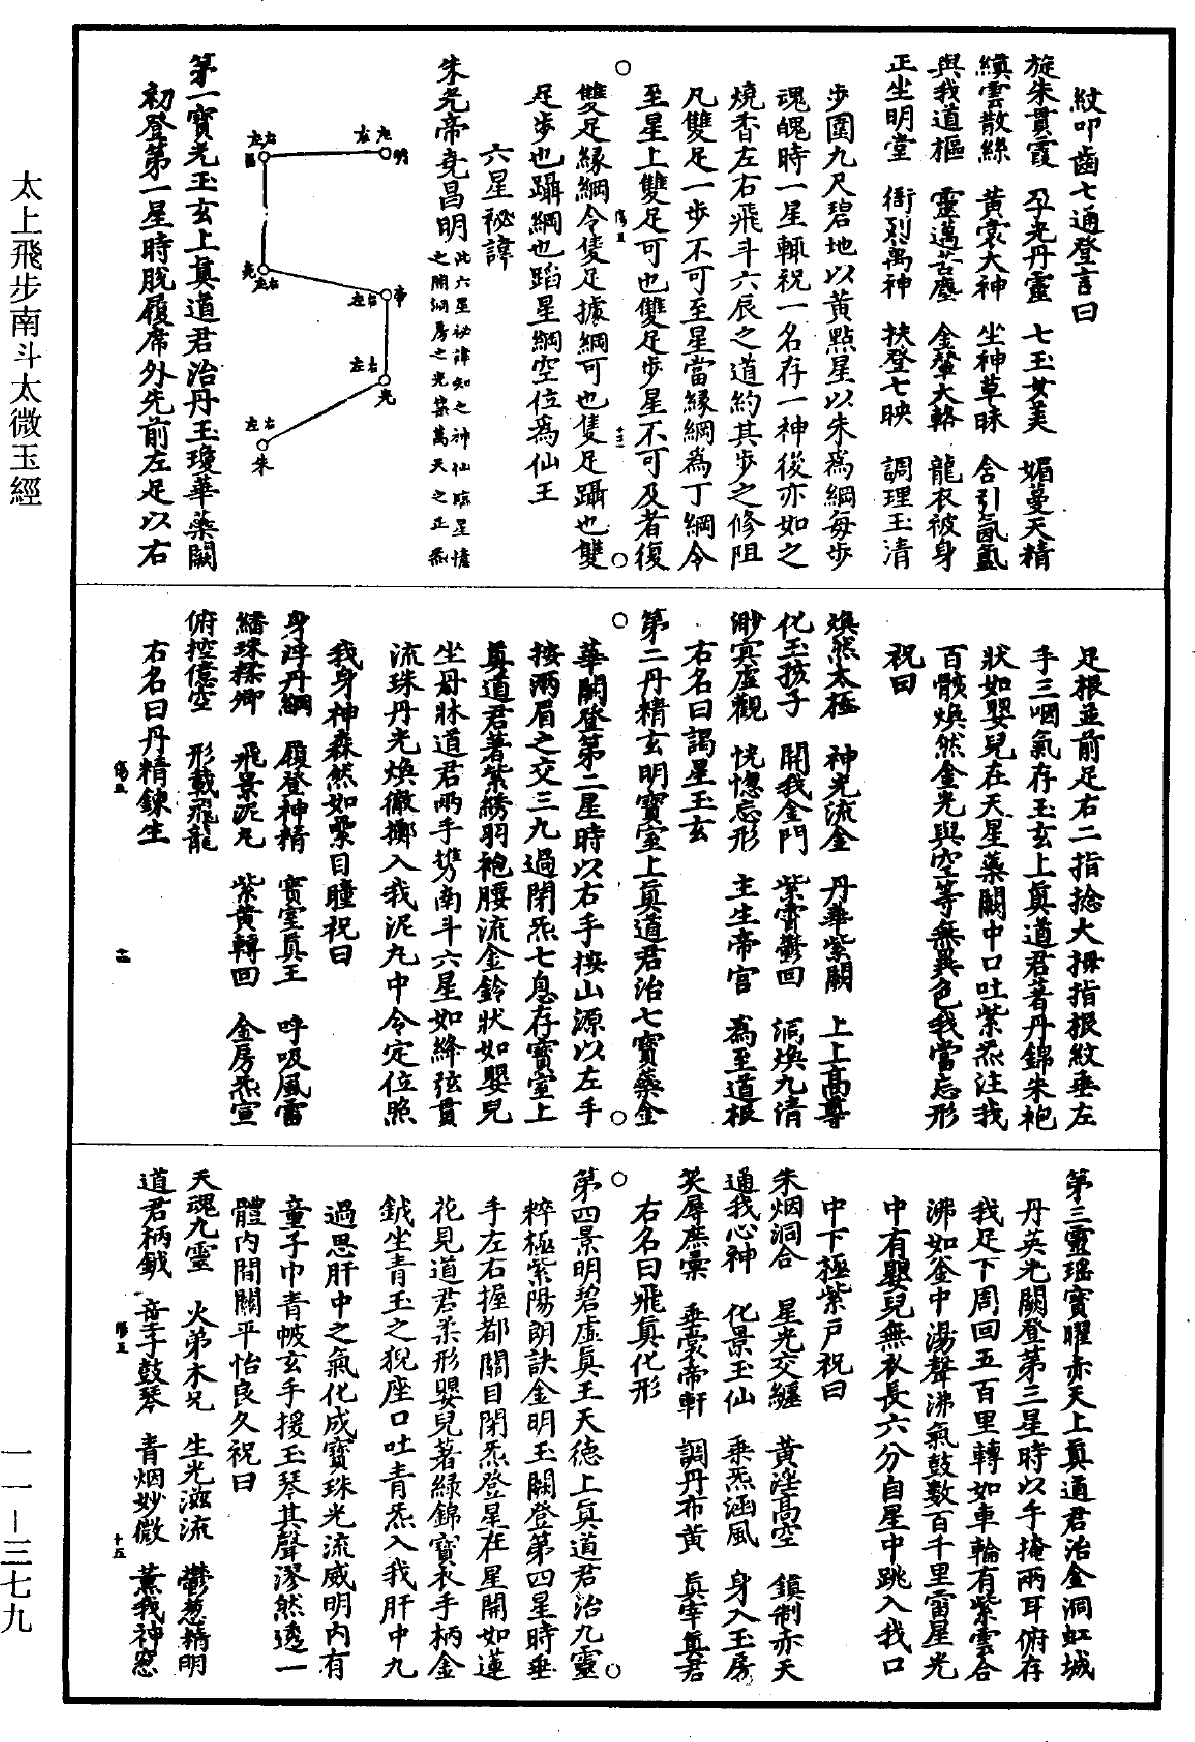 太上飛步南斗太微玉經
一一－三七九
紋叩齒七通登言曰
旋朱貫霞　孕光丹靈　七玉女美　媚蔓天精
縝雲散絲　黃裳大神　坐神草昧　含引氤氳
與我道樞　靈邁苦塵　金輦大輅　龍衣被身
正坐明堂　衙列萬神　扶登七映　調理玉清
步圍九尺碧地以黃點星以朱爲綱每步
魂魄時一星輒祝一名存一神後亦如之
燒香左右飛斗六辰之道約其步之修阻
凡雙足一步不可至星當緣綱爲丁綱令
至星上雙足可也雙足步星不可及者復
雙足緣綱令隻足據綱可也隻足躡也雙
足步也躡綱也蹈星綱空位爲仙王
六星祕諱
朱光帝堯昌明
此六星祕諱知之神仙臨星憶
之開綱房之光案萬天之正炁
左右
昌
左右
明
堯
左右
左右
帝
左右
光
左右
朱
第一寶光玉玄上眞道君治丹玉瓊華蘂闕
初登第一星時脫履席外先前左足以右
足根並前足右二指捻大拇指根紋垂左
手三咽氣存玉玄上眞道君著丹錦朱袍
狀如嬰兒在天星蘂闕中口吐紫炁注我
百骸煥然金光與空等無異色我當忘形
祝曰
煥然太極　神光流金　丹華紫闕　上上高尊
化玉孩子　開我金門　紫霄鬱回　洞煥九清
渺寞虛觀　恍惚忘形　主生帝官　爲至道根
右名曰謁星玉玄
第二丹精玄明寶室上眞道君治七寶蘂金
華闕登第二星時以右手按山源以左手
按兩眉之交三九過閉炁七息存寶室上
眞道君著紫綉羽袍腰流金鈴狀如嬰兒
坐丹牀道君兩手携南斗六星如絳弦貫
流珠丹光煥徹擲入我泥丸中令定位照
我身神森然如縈目瞳祝曰
身浮丹綱　履登神精　寶室眞王　呼吸風雷
繙珠揉卿　飛景泥丸　紫黃轉回　金房炁宣
俯控億空　形載飛龍
右名曰丹精鍊生
第三靈瑤寶曜赤天上眞道君治金洞虹城
丹英光闕登第三星時以手掩兩耳俯存
我足下周回五百里轉如車輪有紫雲合
沸如釜中湯聲沸氣鼓数百千里雷星光
中有嬰兒無衣長六分自星中跳入我口
中下極紫戶祝曰
朱烟洞合　星光交纏　黃淫高空　鎮制赤天
通我心神　化景玉仙　乘炁涵風　身入玉房
笑辱庶彙　垂裳帝軒　調丹布黃　眞宰眞君
右名曰飛眞化形
第四景明碧虛眞王天德上眞道君治九靈
粹極紫陽朗訣金明玉闕登第四星時垂
手左右握都關目閉炁登星在星開如蓮
花見道君柔形嬰兒著綠錦寶衣手柄金
鉞坐青玉之猊座口吐青炁入我肝中九
過思肝中之氣化成寶珠光流威明內有
童子巾青帔玄手援玉琴其聲漻然透一
體內閒關平怡良久祝曰
天魂九靈　火弟木兄　生光滋流　鬱葱精明
道君柄鉞　帝子鼓琴　青烟妙微　薰我神窓